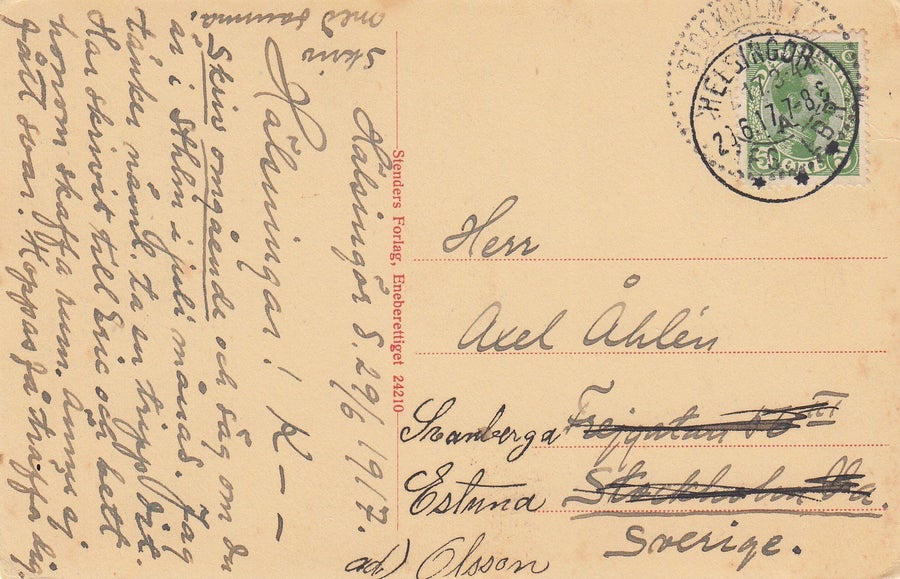 Hälsingör d. 29/6 1917.
Hälsningar! K - -
Skriv omgående och säg om du
är i Sthlm i juli månad. Jag
tänker näml. ta en tripp dit.
Har skrivit till Eric och bett
honom skaffa rum. Ännu ej
fått svar. Hoppas få träffa dig.
Skriv
med samma!
Stenders Forlag, Eneberettiget 24210
STOCKHOLM
HELSINGØR
29.6.17. 7-8
5 5
Herr
Axel Åhlén
Frejgatan
Svanberga
Stockholm Va.
Estuna
Sverige.
ad) Olsson